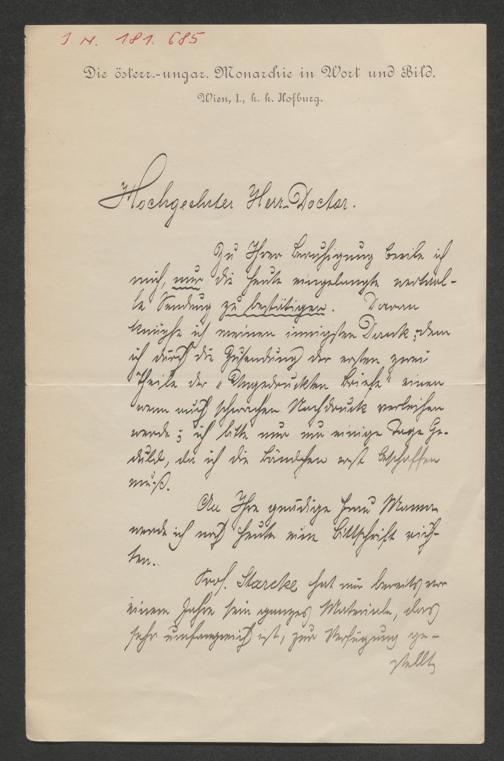 I N. 181.685
Die österr.-ungar. Monarchie in Wort und Bild.
Wien, I., k. k. Hofburg.
Hochgeehrter Herr Doctor.
Zu Ihrer Beruhigung beeile ich
mich, nur die heute eingelangte wertvol-
le Sendung zu bestätigen. Daran
knüpfe ich meinen innigsten Dank, dem
ich durch die Zusendung der ersten zwei
Theile der "Ungedruckten Briefe" einen
wenn auch schwachen Nachdruck verleihen
werde; ich bitte nur um einige Tage Ge-
duld, da ich die Bändchen erst beschaffen
muß.
An Ihre gnädige Frau Mama
werde ich noch heute eine Bittschrift rich-
ten.
Prof. Starcke hat mir bereits vor
einem Jahre sein ganzes Materiale, das
sehr umfangreich ist, zur Verfügung ge-
stellt,